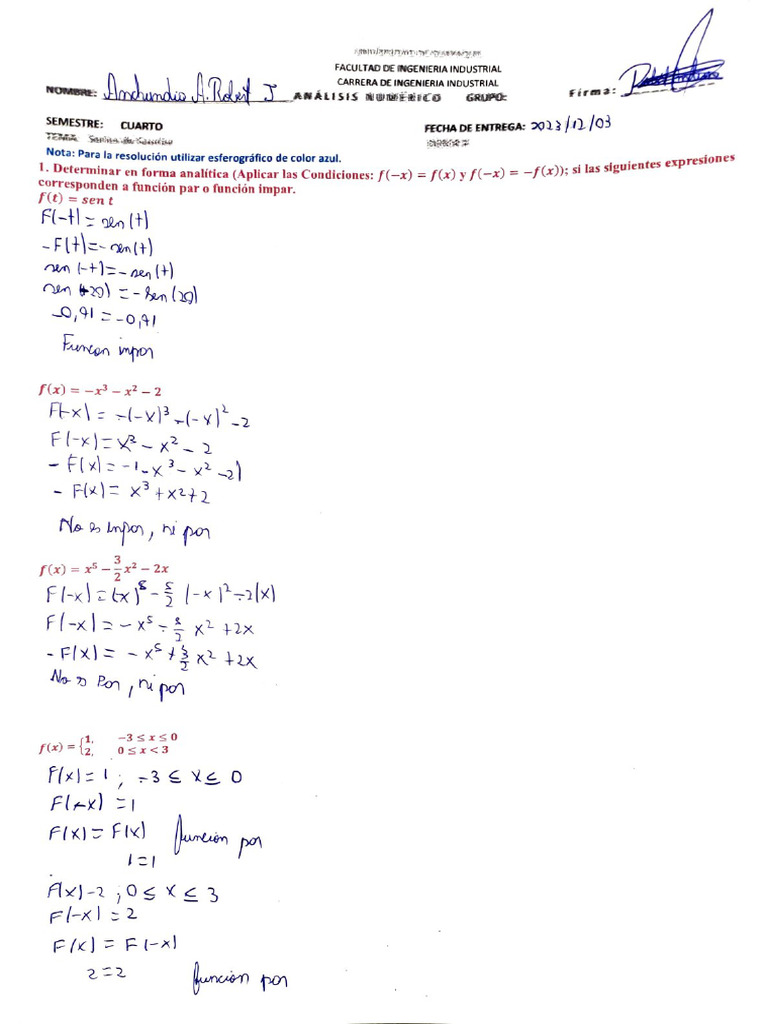 FACULTAD DE INGENIERIA INDUSTRIAL
CARRERA DE INGENIERIA INDUSTRIAL
NOMBRE: Anchundia A. Robert J ANÁLISIS NUMÉRICO GRUPO: Firma:
SEMESTRE: CUARTO FECHA DE ENTREGA: 2023/12/03
TEMA:
Nota: Para la resolución utilizar esferográfico de color azul.
1. Determinar en forma analítica (Aplicar las Condiciones: f(−x) = f(x) y f(−x) = −f(x)); si las siguientes expresiones
corresponden a función par o función impar.
f(t) = sen t
F(-t) = sen(t)
-F(t) = -sen(t)
sen(-t) = -sen(t)
sen(-20) = -sen(20)
-0,91 = -0,91
Funcon impar
f(x) = −x³ − x² − 2
F(-x) = -(-x)³ -(-x)² -2
F(-x) = x³ - x² - 2
- F(x) = -(-x³ - x² -2)
- F(x) = x³ + x² + 2
No es impar, ni par
f(x) = x⁵ − 3/2 x² − 2x
F(-x) = (-x)⁵ - 3/2 (-x)² - 2(x)
F(-x) = -x⁵ - 3/2 x² + 2x
- F(x) = -x⁵ + 3/2 x² + 2x
No es Par, ni par
f(x) = {1, −3 ≤ x ≤ 0
2, 0 ≤ x < 3
F(x) = 1 ; -3 ≤ x ≤ 0
F(-x) = 1
F(x) = F(x) funcion par
1=1
F(x)-2 ; 0 ≤ x ≤ 3
F(-x) = 2
F(x) = F(-x)
2=2 funcion par